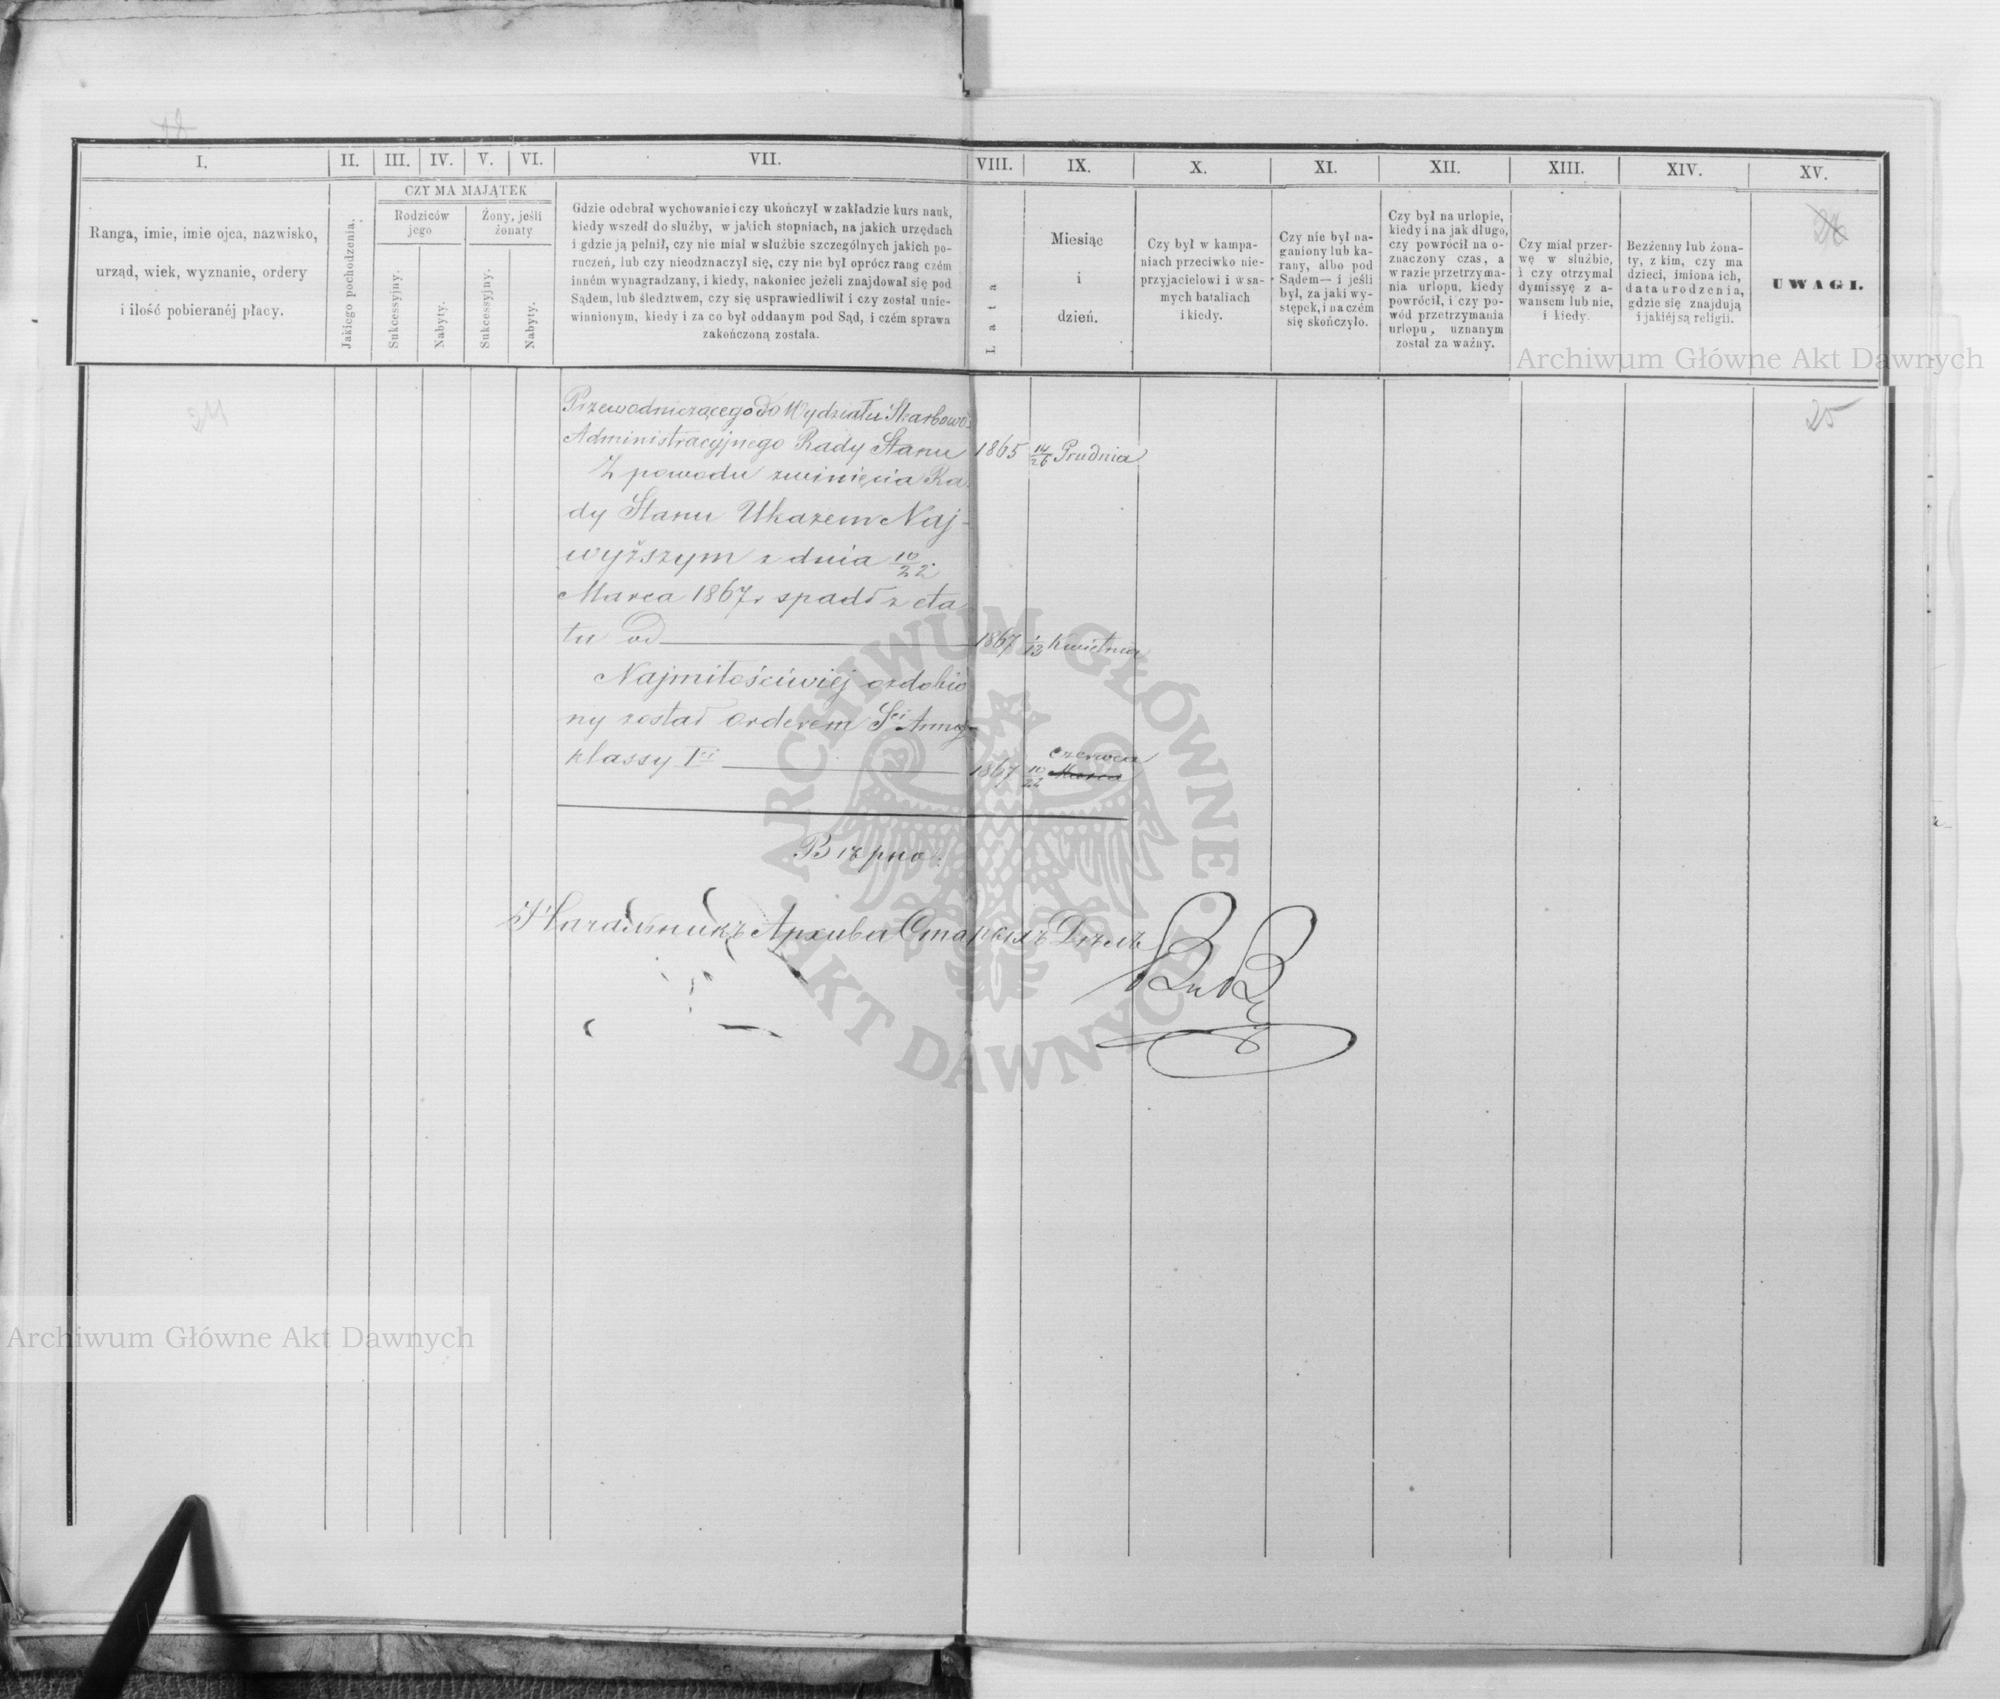 I. II. III. IV. V. VI. VII. VIII. IX. X. XI. XII. XIII. XIV. XV.
Ranga, imie, imie ojca, nazwisko,
urząd, wiek, wyznanie, ordery
i ilość pobieranéj płacy.
Jakiego pochodzenia.
CZY MA MAJĄTEK
Rodziców
jego
Żony, jeśli
żonaty
Sukcessyjny.
Nabyty.
Sukcessyjny.
Nabyty.
Gdzie odebrał wychowanie i czy ukończył w zakładzie kurs nauk,
kiedy wszedł do służby, w jakich stopniach, na jakich urzędach
i gdzie ją pełnił, czy nie miał w służbie szczególnych jakich po-
ruczeń, lub czy nieodznaczył się, czy nie był oprócz rang czém
inném wynagradzany, i kiedy, nakoniec jeżeli znajdował się pod
Sądem, lub śledztwem, czy się usprawiedliwił i czy został unie-
winnionym, kiedy i za co był oddanym pod Sąd, i czém sprawa
zakończoną została.
Lata
Miesiąc
i
dzień.
Czy był w kampa-
niach przeciwko nie-
przyjacielowi i w sa-
mych bataliach
i kiedy.
Czy nie był na-
ganiony lub ka-
rany, albo pod
Sądem— i jeśli
był, za jaki wy-
stępek, i na czém
się skończyło.
Czy był na urlopie,
kiedy i na jak długo,
czy powrócił na o-
znaczony czas, a
w razie przetrzyma-
nia urlopu, kiedy
powrócił, i czy po-
wód przetrzymania
urlopu, uznanym
został za ważny.
Czy miał przer-
wę w służbie,
i czy otrzymał
dymissyę z a-
wansem lub nie,
i kiedy.
Bezżenny lub żona-
ty, z kim, czy ma
dzieci, imiona ich,
data urodzenia,
gdzie się znajdują
i jakiéj są religii.
26
UWAGI.
24
25
Przewodniczącego do Wydziału Skarbowo-
Administracyjnego Rady Stanu 1865 14/26 Grudnia
Z powodu zwinięcia Ra-
dy Stanu Ukazem Naj-
wyższym z dnia 10/22
Marca 1867 r spadł z eta-
tu od 1867 1/13 Kwietnia
Najmiłościwiej ozdobio-
ny został orderem Sej Anny
klassy Iej 1867 10/22 Marca czerwca
Вѣрно:
Начальникъ Архива Старыхъ Дѣлъ
Archiwum Główne Akt Dawnych
Archiwum Główne Akt Dawnych
ARCHIWUM GŁÓWNE AKT DAWNYCH